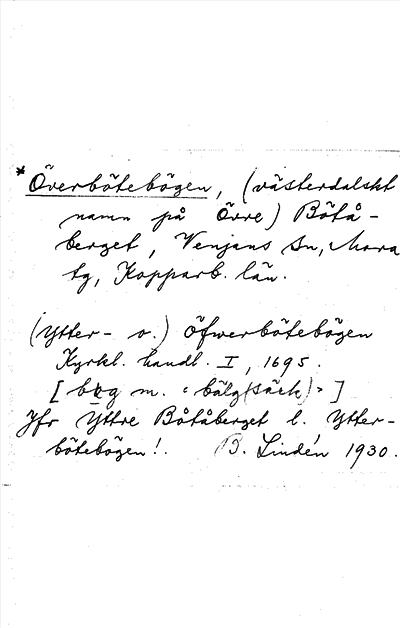 * Överbötebögen, (västerdalskt
namn på Övre) Bötå-
berget, Venjans Sn, Mora
tg, Kopparb. län.
(Ytter- o.) Öfwerbötebögen
Kyrkl. handl. I, 1695.
[ bög m. "bälg (säck)" ]
Jfr Yttre Bötåberget l. Ytter-
bötebögen!. B. Lindén 1930.